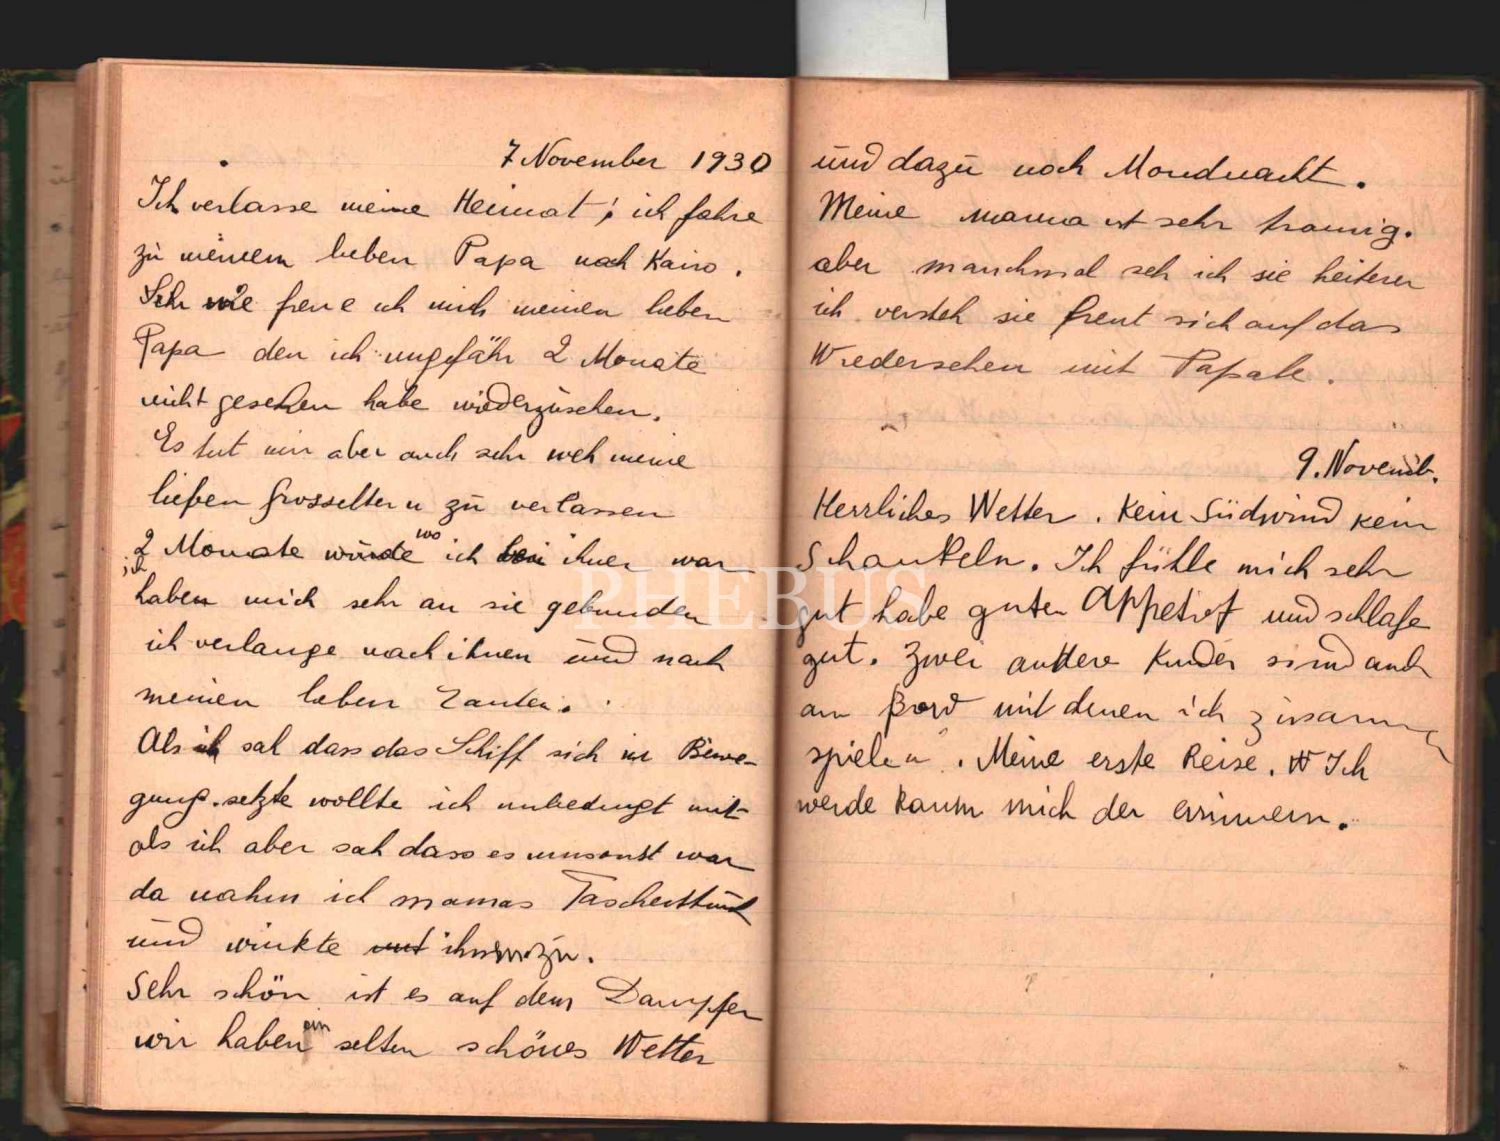 7 November 1930
Ich verlasse meine Heimat; ich fahre
zu meinem lieben Papa nach Kairo.
Sehr wie freue ich mich meinen lieben
Papa den ich ungefähr 2 Monate
nicht gesehen habe wiederzusehen.
Es tut mir aber auch sehr weh meine
lieben Grosseltern zu verlassen
2 Monate würde wo ich bei ihnen war
ich haben mich sehr an sie gebunden
ich verlange nach ihnen und nach
meinen lieben Tanten.
Als ich sah dass das Schiff sich in Bewe-
gung setzte wollte ich unbedingt mit
als ich aber sah dass es umsonst war
da nahm ich mamas Taschentuch
und winkte mit ihnen zu.
Sehr schön ist es auf dem Dampfer
wir haben ein selten schönes Wetter
und dazu noch Mondnacht.
Meine mama ist sehr traurig.
aber manchmal seh ich sie heiterer
ich versteh sie freut sich auf das
Wiedersehen mit Papale.
9. Novemb.
Herrliches Wetter. Kein Südwind kein
Schaukeln. Ich fühle mich sehr
gut habe guten Appetit und schlafe
gut. Zwei andere Kinder sind auch
an Bord mit denen ich zusamm
spielen. Meine erste Reise. Ich
werde kaum mich der erinnern.
PHEBUS